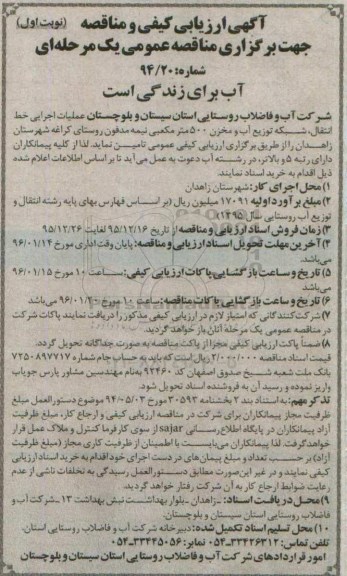 آگهی ارزیابی کیفی و مناقصه (نوبت اول)
جهت برگزاری مناقصه عمومی یک مرحله‌ای
شماره: ۹۴/۲۰
آب برای زندگی است
شرکت آب و فاضلاب روستایی استان سیستان و بلوچستان عملیات اجرایی خط
انتقال، شبکه توزیع آب و مخزن ۵۰۰ متر مکعبی نیمه مدفون روستای کراغه شهرستان
زاهدان را از طریق برگزاری ارزیابی کیفی عمومی تامین نماید. لذا از کلیه پیمانکاران
دارای رتبه ۵ و بالاتر، در رشته آب دعوت به عمل می‌آید تا بر اساس اطلاعات اعلام شده
ذیل اقدام به خرید اسناد نمایند.
۱) محل اجرای کار: شهرستان زاهدان
۲) مبلغ برآورد اولیه: ۱۷۰۹۱ میلیون ریال (بر اساس فهارس بهای پایه رشته انتقال و
توزیع آب روستایی سال ۱۳۹۵)
۳) زمان فروش اسناد ارزیابی و مناقصه: از تاریخ ۹۵/۱۲/۱۶ لغایت ۹۵/۱۲/۲۶
۴) آخرین مهلت تحویل اسناد ارزیابی و مناقصه: پایان وقت اداری مورخ ۹۶/۰۱/۱۴
می‌باشد.
۵) تاریخ و ساعت بازگشایی پاکات ارزیابی کیفی: ساعت ۱۰ مورخ ۹۶/۰۱/۱۵
می‌باشد
۶) تاریخ و ساعت بازگشایی پاکات مناقصه: ساعت ۱۰ مورخ ۹۶/۰۱/۲۰ می‌باشد
۷) شرکت‌کنندگانی که امتیاز لازم در ارزیابی کیفی مذکور را دریافت نمایند پاکات شرکت
در مناقصه عمومی یک مرحله آنان باز خواهد گردید.
۸) ضمناً پاکت ارزیابی کیفی مجزا از پاکت مناقصه به صورت جداگانه تحویل گردد.
قیمت اسناد مناقصه ۲/۰۰۰/۰۰۰ ریال است که باید به حساب جام شماره ۷۲۵۰۸۹۷۷۱۷
بانک ملت شعبه شیخ صدوق اصفهان کد ۹۲۴۶۰ به نام مهندسین مشاور پارس جویاب
واریز نموده و رسید آن به فروشنده اسناد تحویل شود.
تذکر مهم: به استناد بند ۲ بخشنامه ۳۰۵۹۳ مورخ ۹۴/۰۵/۰۳ موضوع دستورالعمل مبلغ
ظرفیت مجاز پیمانکاران برای شرکت در مناقصه ارزیابی کیفی و ارجاع کار، مبلغ ظرفیت
آزاد پیمانکاران در پایگاه اطلاع رسانی sajar از سوی کارفرما کنترل و ملاک عمل قرار
خواهد گرفت. لذا پیمانکاران می‌بایست با اطمینان از ظرفیت کاری مجاز (مبلغ ظرفیت
آزاد) بر حسب تعداد و مبلغ پیمان‌های در دست اجرای خود اقدام به خرید اسناد ارزیابی
کیفی نمایند و در غیر این صورت مطابق دستورالعمل رسیدگی به تخلفات ناشی از عدم
رعایت ضوابط ارجاع کار به آن شرکت رفتار خواهد گردید.
۹) محل دریافت اسناد: زاهدان - بلوار بهداشت نبش بهداشت ۱۳ - شرکت آب و
فاضلاب روستایی استان سیستان و بلوچستان
۱۰) محل تسلیم اسناد تکمیل شده: دبیرخانه شرکت آب و فاضلاب روستایی استان.
تلفن تماس: ۳۳۴۲۶۳۱۲-۰۵۴ نمابر: ۳۳۴۴۵۰۵۶-۰۵۴
امور قراردادهای شرکت آب و فاضلاب روستایی استان سیستان و بلوچستان